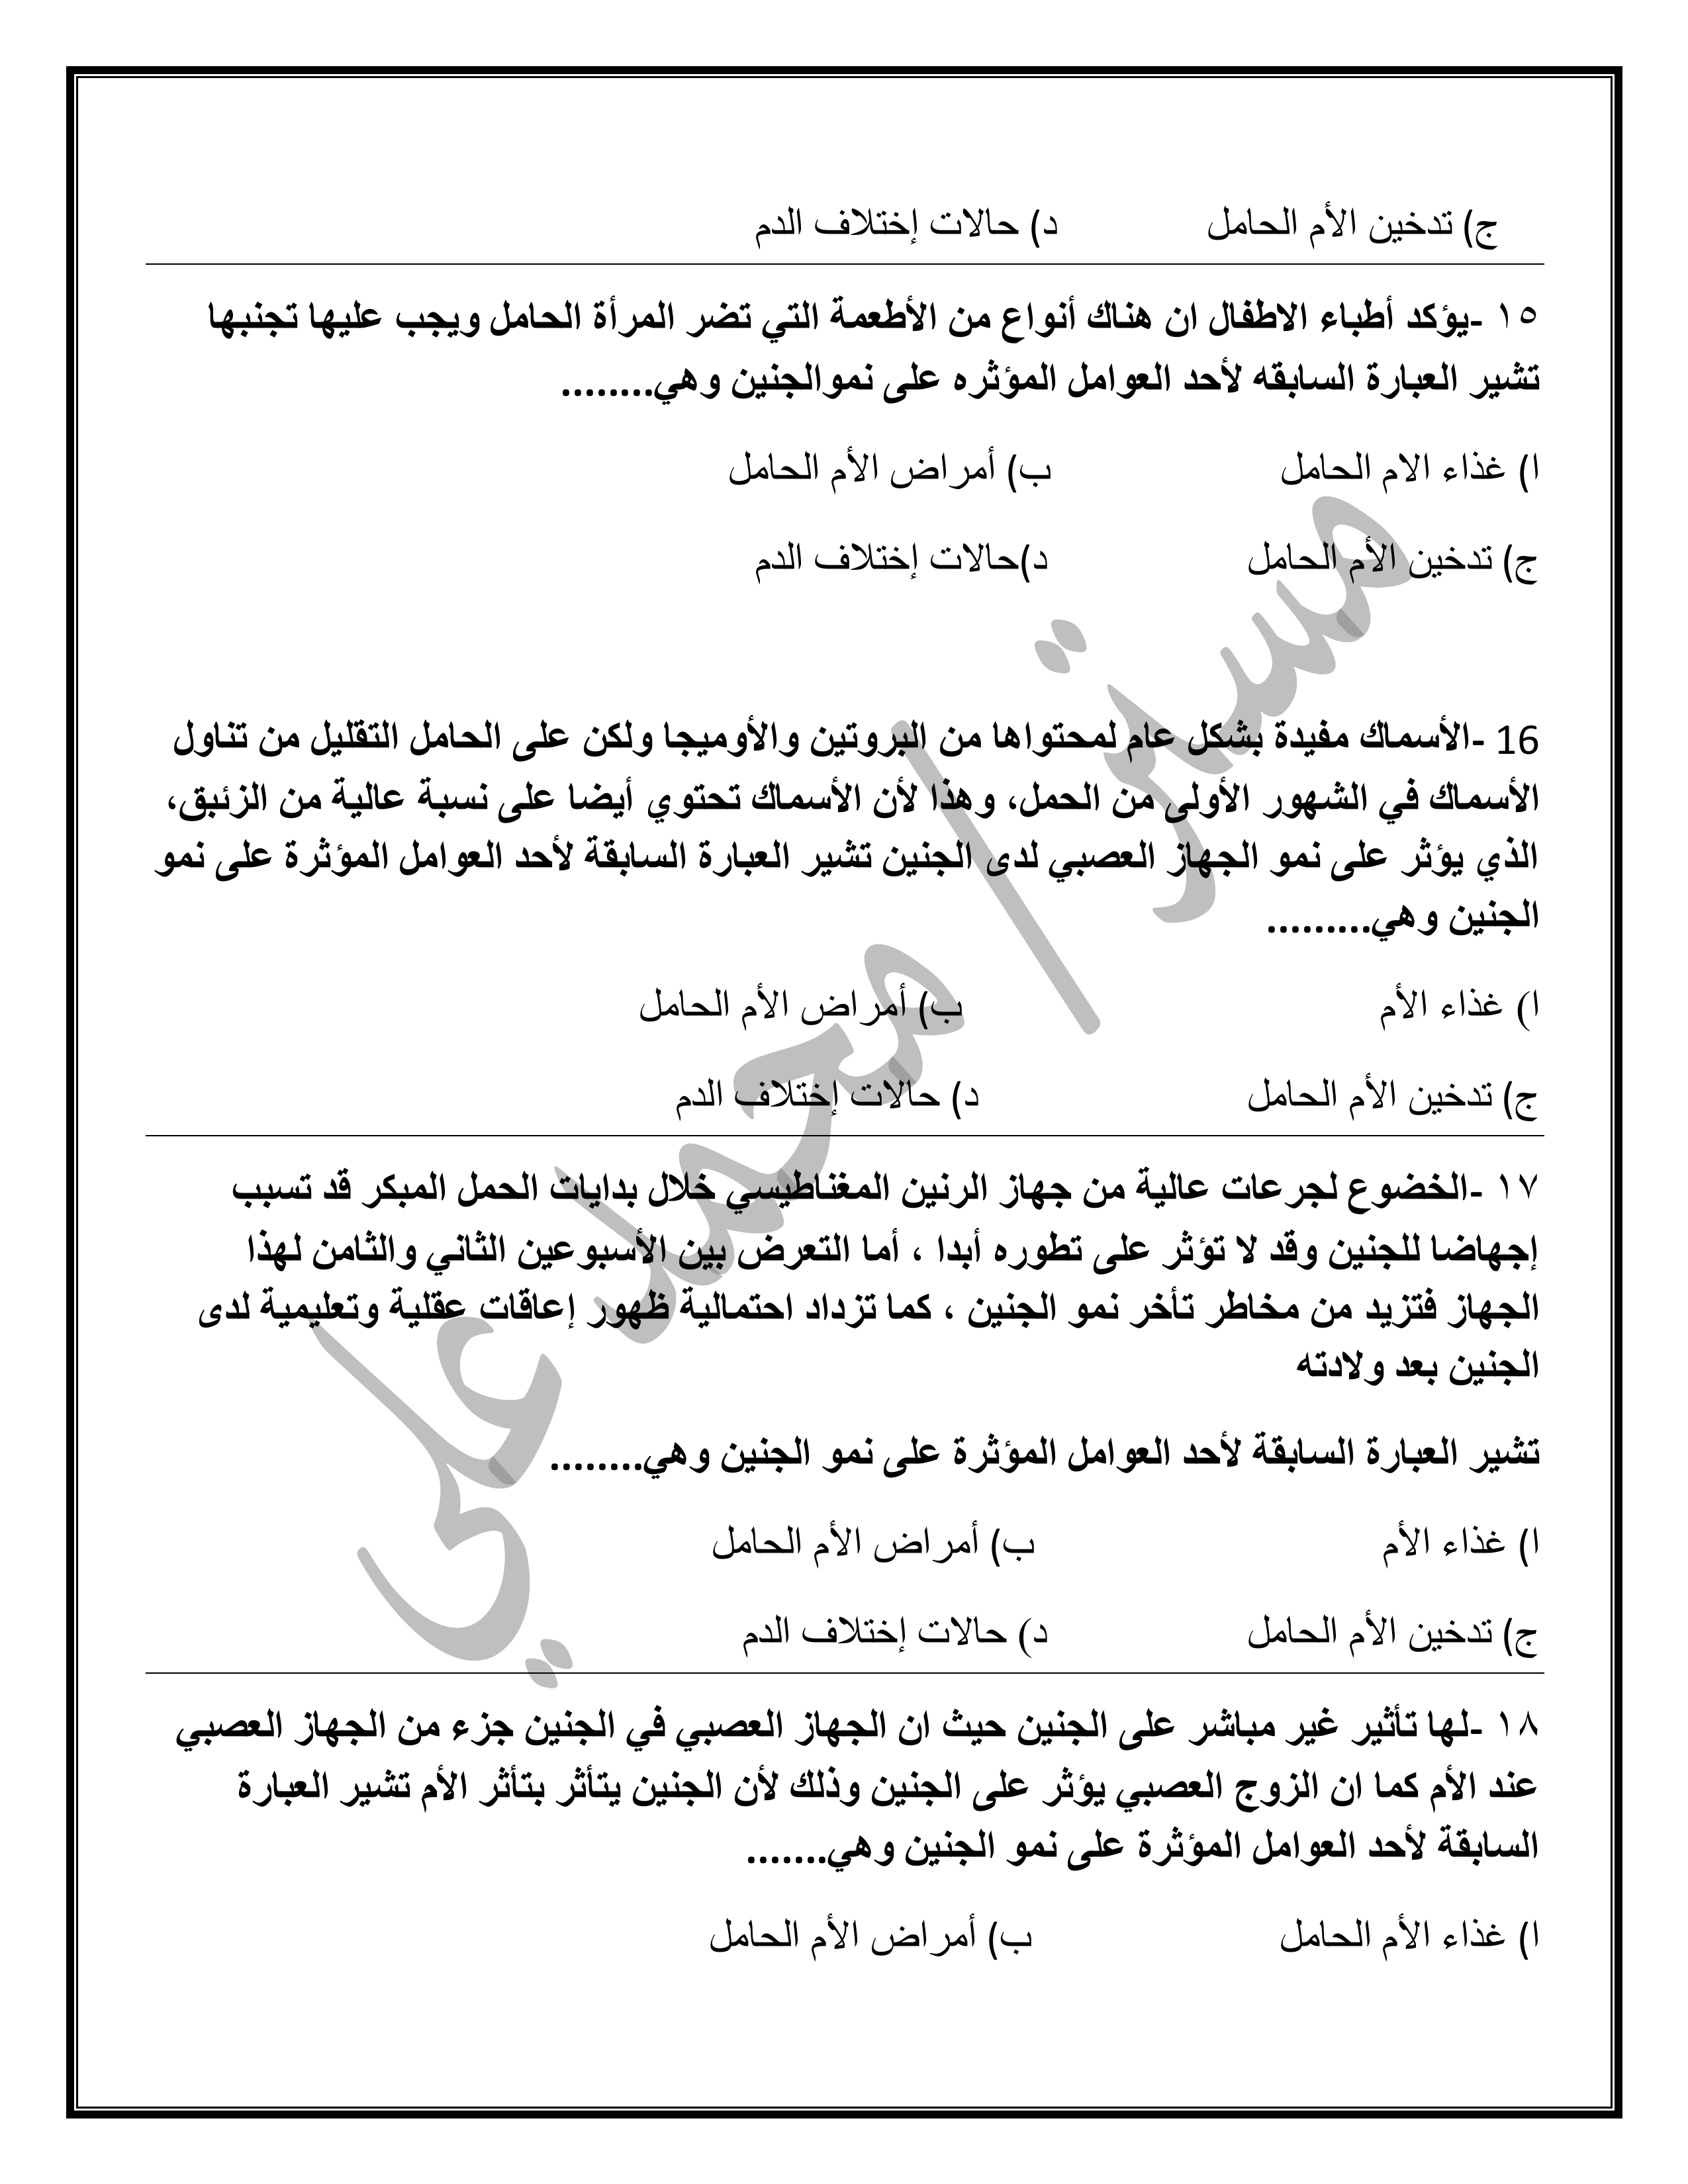 ج) تدخين الأم الحامل د) حالات إختلاف الدم
١٥ -يؤكد أطباء الاطفال ان هناك أنواع من الأطعمة التي تضر المرأة الحامل ويجب عليها تجنبها
تشير العبارة السابقه لأحد العوامل المؤثره على نموالجنين وهي........
ا) غذاء الام الحامل ب) أمراض الأم الحامل
ج) تدخين الأم الحامل د)حالات إختلاف الدم
16 -الأسماك مفيدة بشكل عام لمحتواها من البروتين والأوميجا ولكن على الحامل التقليل من تناول
الأسماك في الشهور الأولى من الحمل، وهذا لأن الأسماك تحتوي أيضا على نسبة عالية من الزئبق،
الذي يؤثر على نمو الجهاز العصبي لدى الجنين تشير العبارة السابقة لأحد العوامل المؤثرة على نمو
الجنين وهي.........
ا) غذاء الأم ب) أمراض الأم الحامل
ج) تدخين الأم الحامل د) حالات إختلاف الدم
١٧ -الخضوع لجرعات عالية من جهاز الرنين المغناطيسي خلال بدايات الحمل المبكر قد تسبب
إجهاضا للجنين وقد لا تؤثر على تطوره أبدا ، أما التعرض بين الأسبوعين الثاني والثامن لهذا
الجهاز فتزيد من مخاطر تأخر نمو الجنين ، كما تزداد احتمالية ظهور إعاقات عقلية وتعليمية لدى
الجنين بعد ولادته
تشير العبارة السابقة لأحد العوامل المؤثرة على نمو الجنين وهي........
ا) غذاء الأم ب) أمراض الأم الحامل
ج) تدخين الأم الحامل د) حالات إختلاف الدم
١٨ -لها تأثير غير مباشر على الجنين حيث ان الجهاز العصبي في الجنين جزء من الجهاز العصبي
عند الأم كما ان الزوج العصبي يؤثر على الجنين وذلك لأن الجنين يتأثر بتأثر الأم تشير العبارة
السابقة لأحد العوامل المؤثرة على نمو الجنين وهي.......
ا) غذاء الأم الحامل ب) أمراض الأم الحامل
مستر/ محمد علي